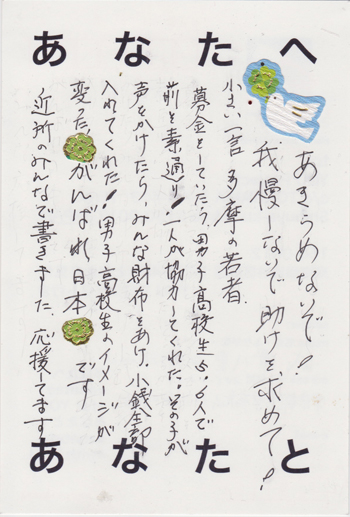 あなたへ
あきらめないで!
我慢しないで助けを求めて!
小さい一言 多摩の若者
募金をしていたら男子高校生が5、6人で
前を素通り!一人が協力してくれた。その子が
声をかけたら、みんな財布をあけ、小銭全部
入れてくれた!男子高校生のイメージが
変った。がんばれ日本です
近所のみんなで書きました。応援してます
あなたと